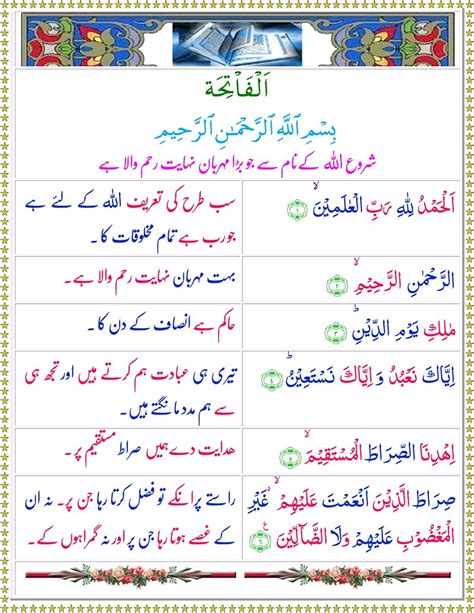 اَلْفَاتِحَة
بِسْمِ اللّٰهِ الرَّحْمٰنِ الرَّحِيْمِ
شروع اللہ کے نام سے جو بڑا مہربان نہایت رحم والا ہے
اَلْحَمْدُ لِلّٰهِ رَبِّ الْعٰلَمِيْنَۙ ﴿۱﴾
سب طرح کی تعریف اللہ کے لئے ہے
جو رب ہے تمام مخلوقات کا۔
الرَّحْمٰنِ الرَّحِيْمِۙ ﴿۲﴾
بہت مہربان نہایت رحم والا ہے۔
مٰلِكِ يَوْمِ الدِّيْنِؕ ﴿۳﴾
حاکم ہے انصاف کے دن کا۔
اِيَّاكَ نَعْبُدُ وَ اِيَّاكَ نَسْتَعِيْنُؕ ﴿۴﴾
تیری ہی عبادت ہم کرتے ہیں اور تجھ ہی
سے ہم مدد مانگتے ہیں۔
اِهْدِنَا الصِّرَاطَ الْمُسْتَقِيْمَۙ ﴿۵﴾
ھدایت دے ہمیں صراط مستقیم پر۔
صِرَاطَ الَّذِيْنَ اَنْعَمْتَ عَلَيْهِمْ ۙ غَيْرِ
الْمَغْضُوْبِ عَلَيْهِمْ وَلَا الضَّآلِّيْنَ ﴿۶﴾
راستے پر انکے تو فضل کرتا رہا جن پر۔ نہ ان
کے غصے ہوتا رہا جن پر اور نہ گمراہوں کے۔